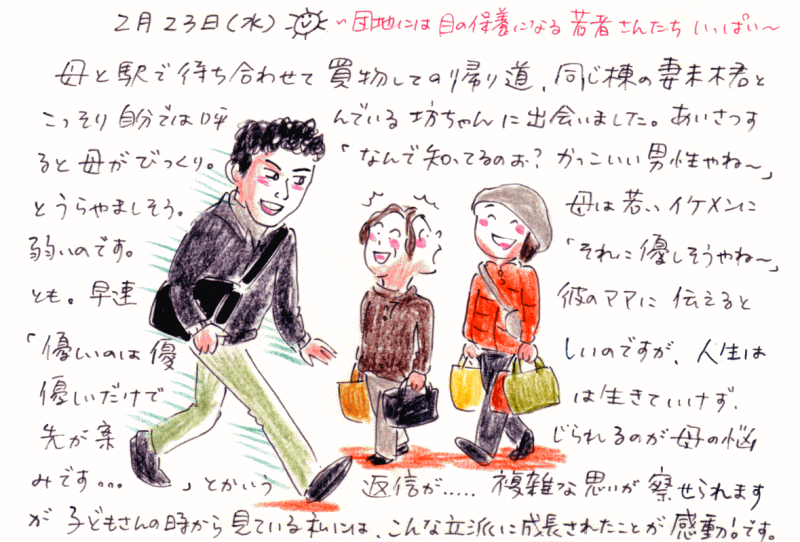 2月23日(水) 〜団地には目の保養になる若者さんたちいっぱい〜
母と駅で待ち合わせて買物しての帰り道、同じ棟の妻夫木君と
こっそり自分では呼んでいる坊ちゃんに出会いました。あいさつす
ると母がびっくり。「なんで知ってるのぉ?かっこいい男性やね〜」
とうらやましそう。母は若いイケメンに
弱いのです。「それに優しそうやね〜」
とも。早速彼のママに伝えると
「優しいのは優しいのですが、人生は
優しいだけでは生きていけず、
先が案じられるのが母の悩
みです...」とかいう返信が.....複雑な思いが察せられます
が子どもさんの時から見ている私には、こんな立派に成長されたことが感動!です。